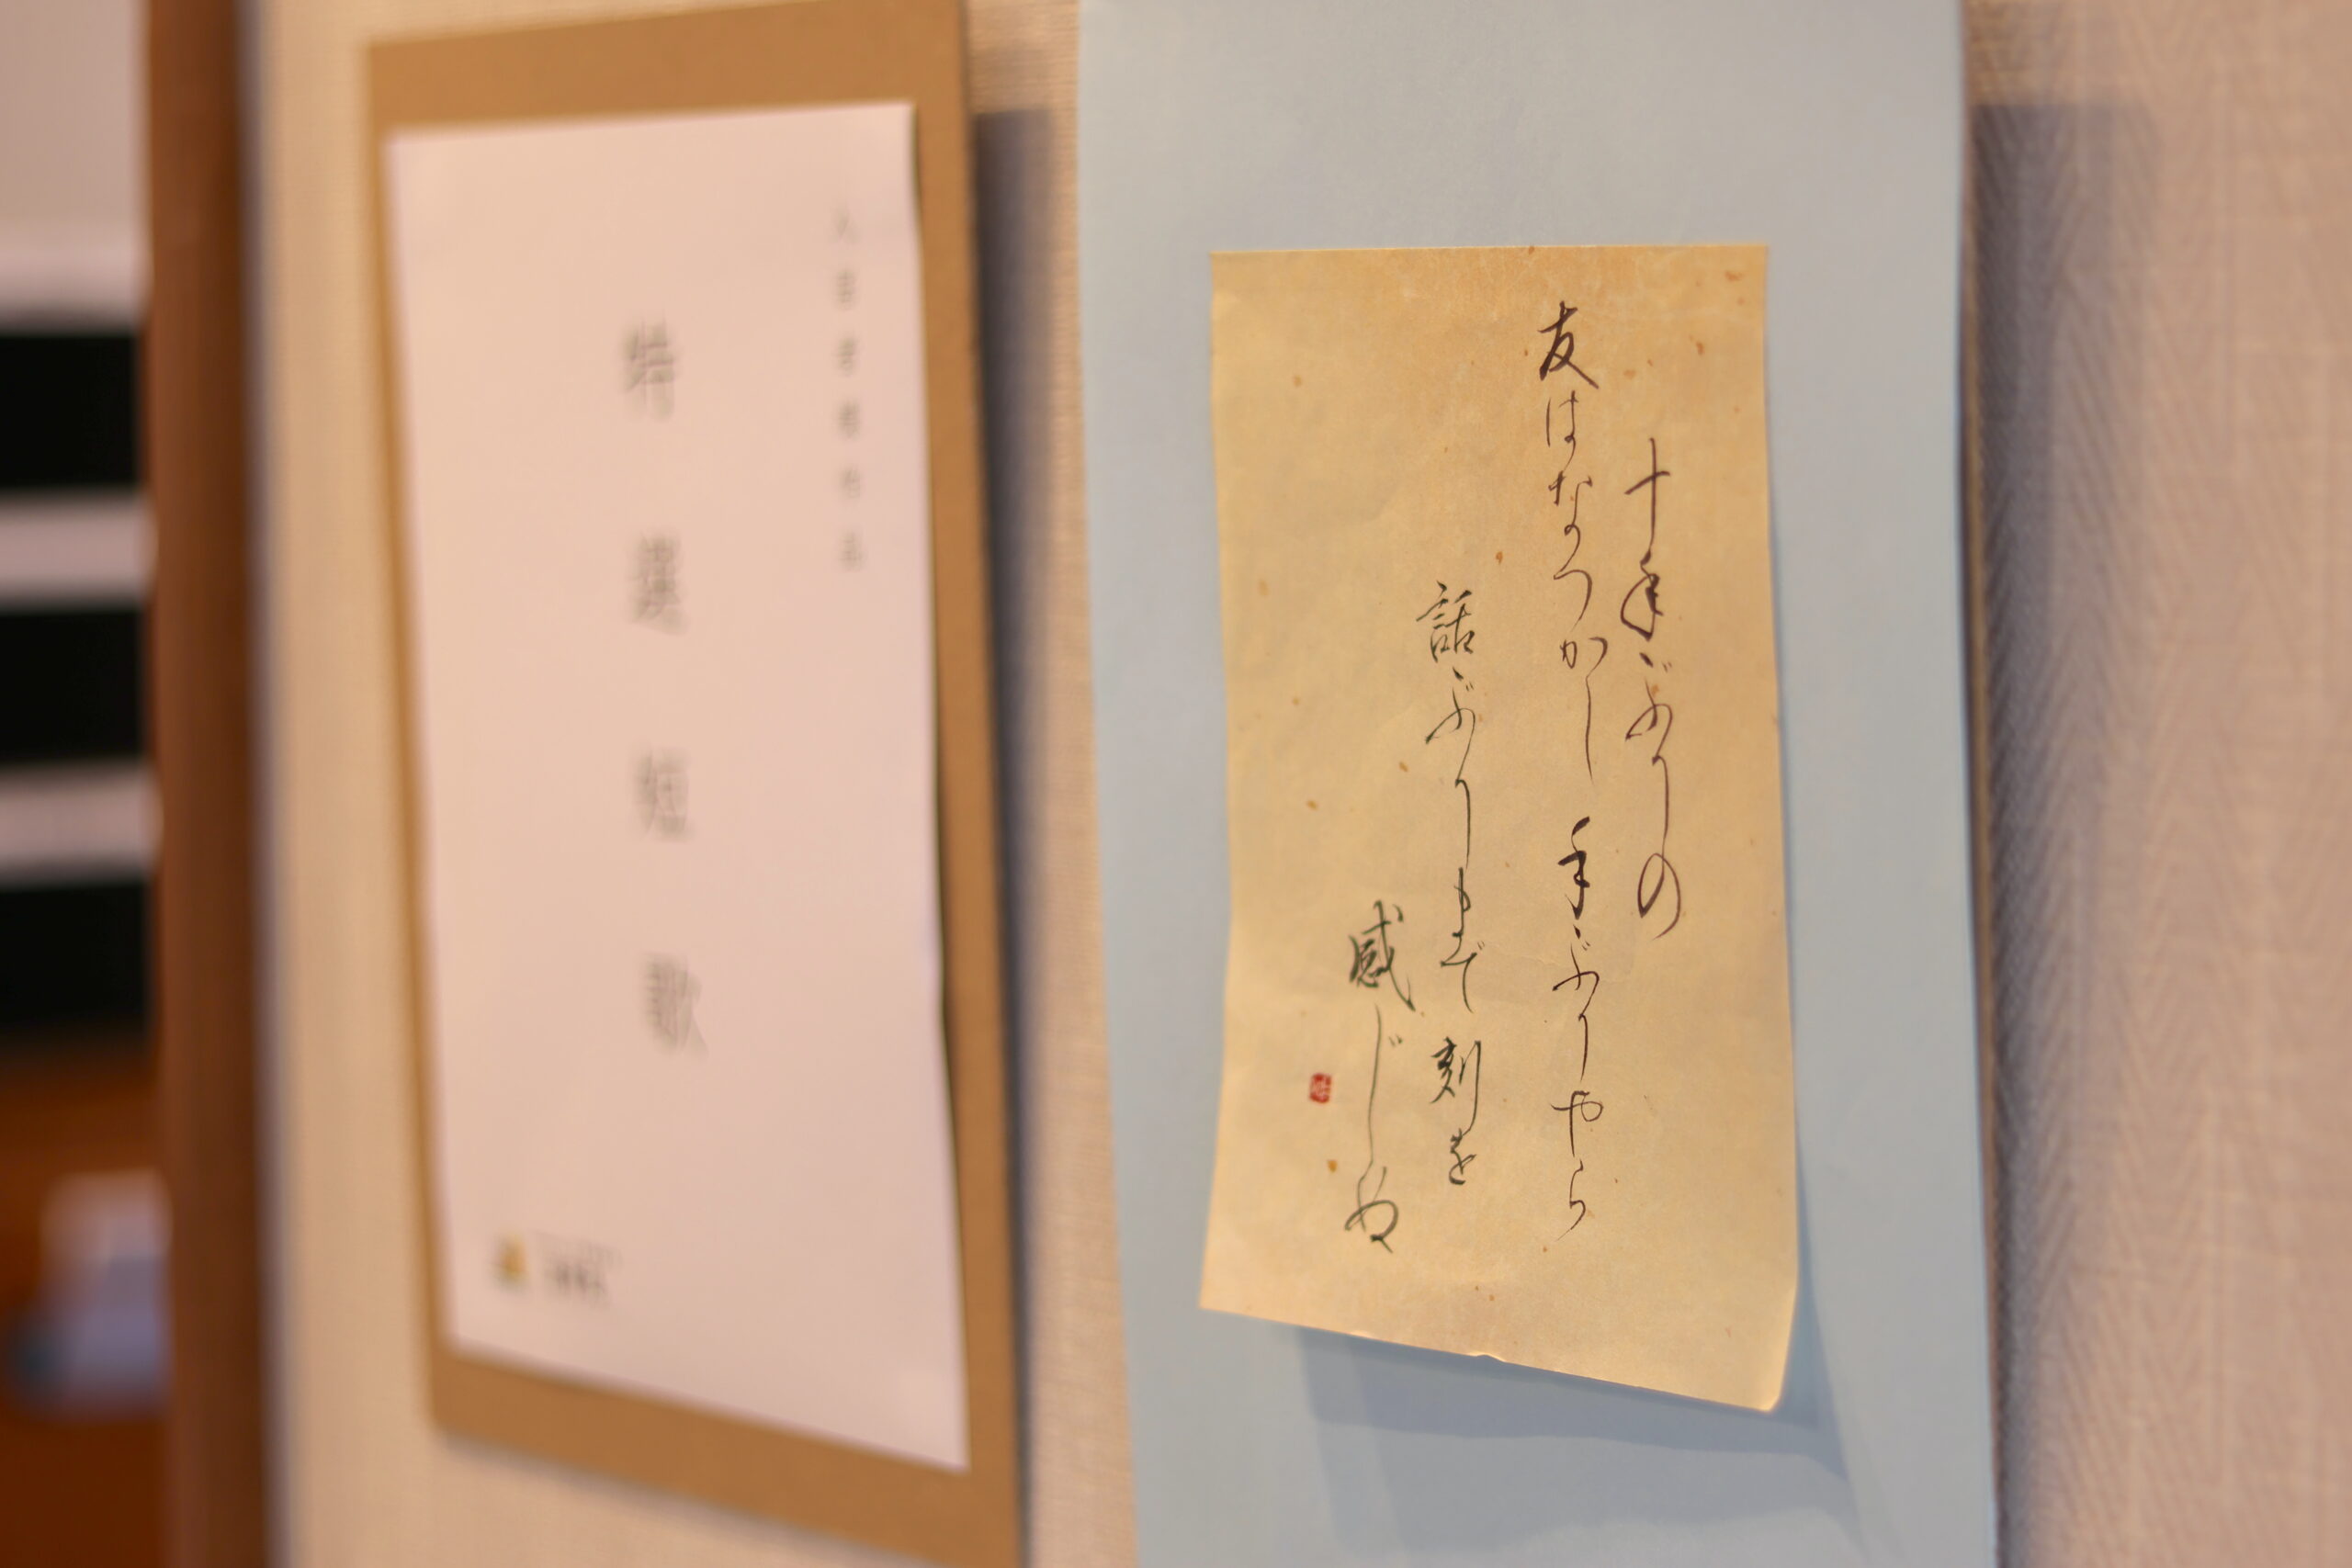 十年ぶりの
友はなつかし 手ぶりやら
話ぶりまで 刻を
感じぬ
入居者様作品
特選短歌